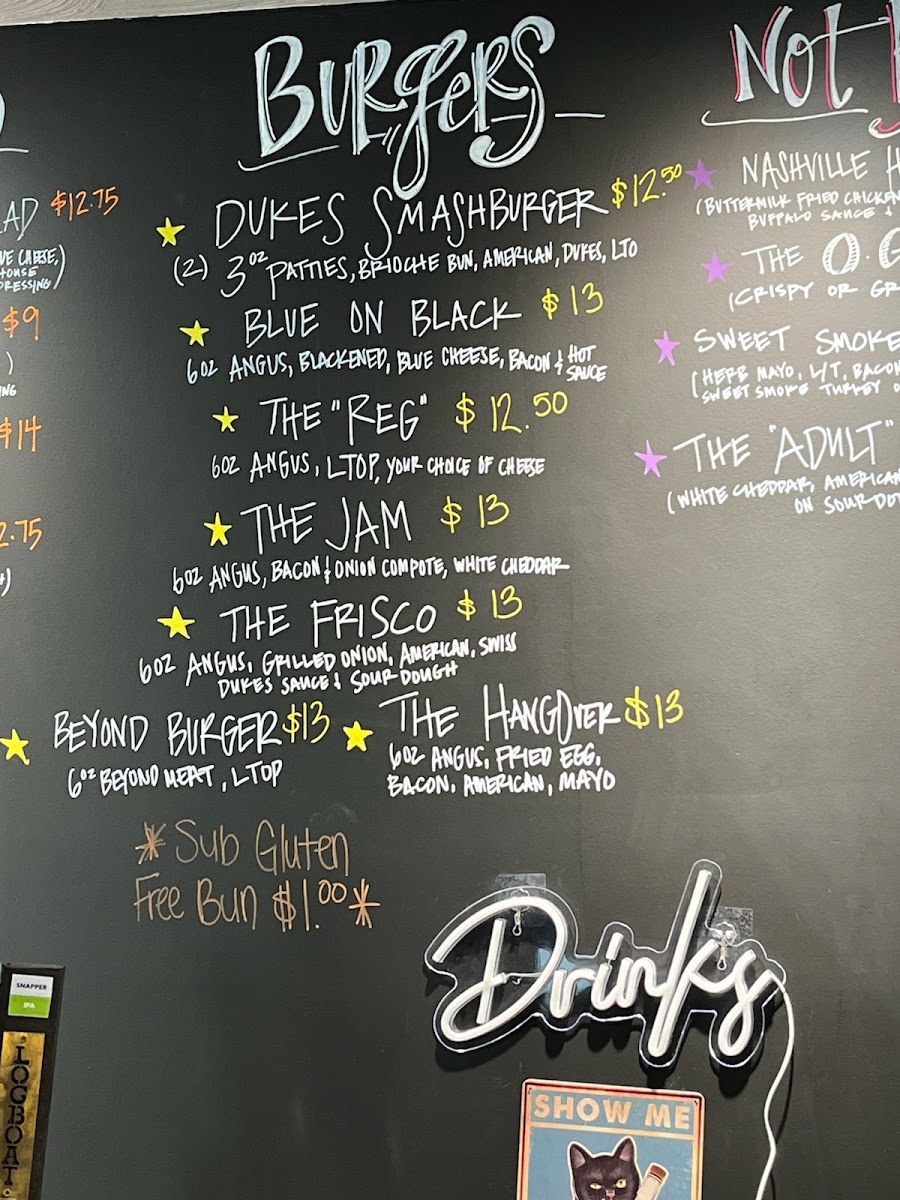 Burgers
DUKES SMASHBURGER $12.50
(2) 3oz PATTIES, BRIOCHE BUN, AMERICAN, DUKES, LTO
BLUE ON BLACK $13
6oz ANGUS, BLACKENED, BLUE CHEESE, BACON & HOT
SAUCE
THE "REG" $12.50
6oz ANGUS, LTOP, YOUR CHOICE OF CHEESE
THE JAM $13
6oz ANGUS, BACON & ONION COMPOTE, WHITE CHEDDAR
THE FRISCO $13
6oz ANGUS, GRILLED ONION, AMERICAN, SWISS
DUKES SAUCE & SOUR DOUGH
BEYOND BURGER $13
6oz BEYOND MEAT, LTOP
THE HANGOVER $13
6oz ANGUS, FRIED EGG,
BACON, AMERICAN, MAYO
*Sub Gluten
Free Bun $1.00*
$12.75
HOUSE
$9
)
$14
Not
NASHVILLE
(BUTTERMILK FRIED
BUFFALO SAUCE &
THE O.G
(CRISPY OR
SWEET SMOKE
(HERB MAYO, L/T, BACON
SWEET SMOKE TURKEY
THE "ADULT"
(WHITE CHEDDAR, AMERICAN
ON
Drinks
SHOW ME
SNAPPER
IPA
LOGBOAT